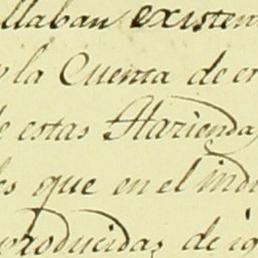 llaban existen
la Cuenta de
estas Hazienda
que en el indi
producidas de ig